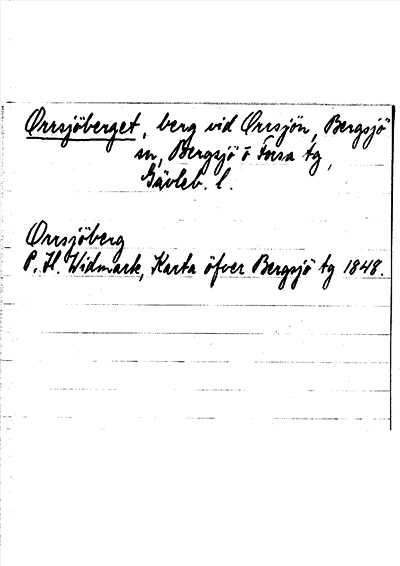 Orrsjöberget, berg vid Orrsjön, Bergsjö
sn, Bergsjö o Forsa tg,
Gävleb. l.
Orrsjöberg
P. H. Widmark, Karta öfver Bergsjö tg 1848.